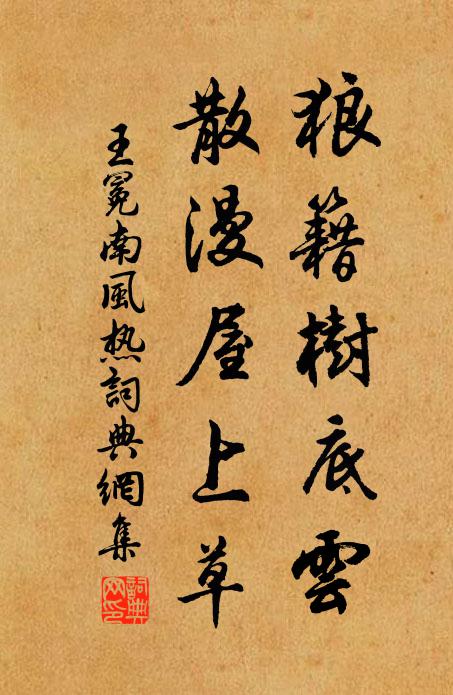 狼籍樹底雲
散漫屋上草
王冕南風熱詞典網集
詞典
网印